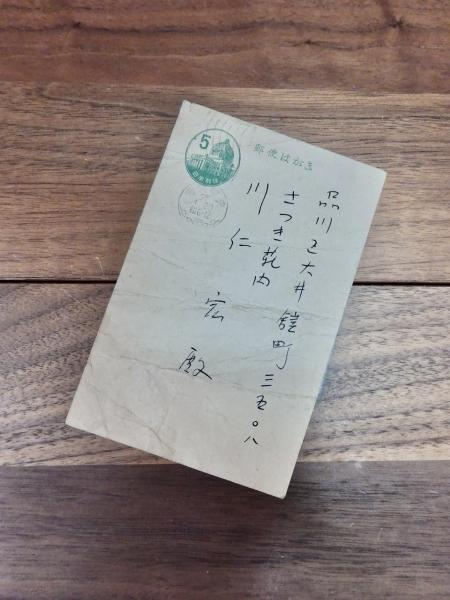 5
日本郵便
郵便はがき
品川区大井鎧町三五〇八
さつき荘内
川仁宏殿